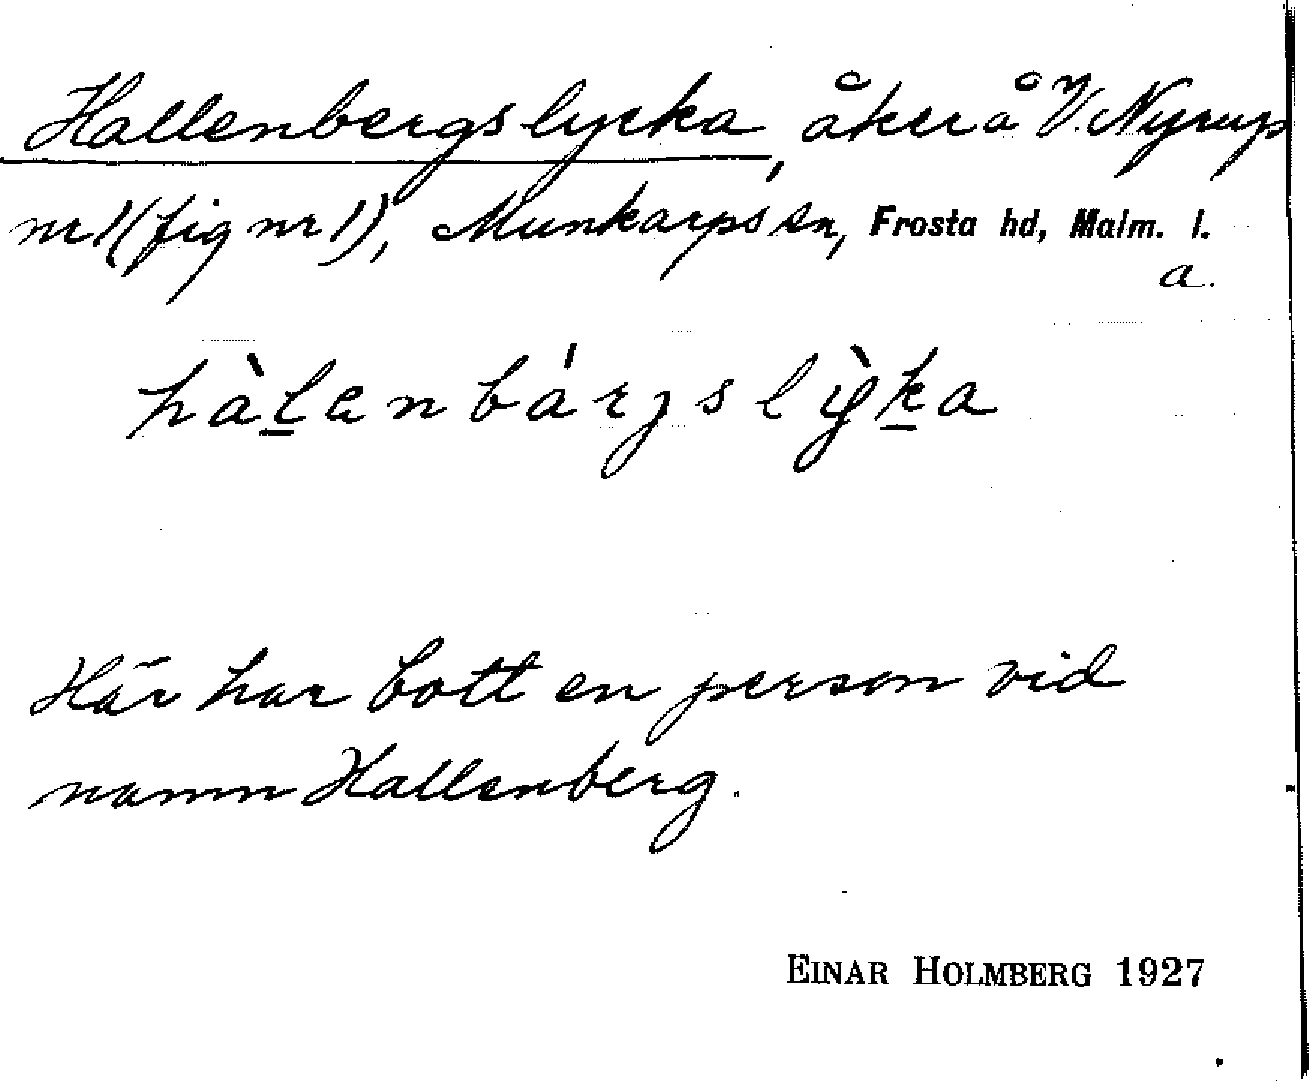 Hallenbergslycka, åker å V. Nyrup
nr 1 (fig nr 1), Munkarps sn, Frosta hd, Malm. l.
a.
hàl̲enbárgslỳk̲a
Här har bott en person vid
namn Hallenberg.
EINAR HOLMBERG 1927